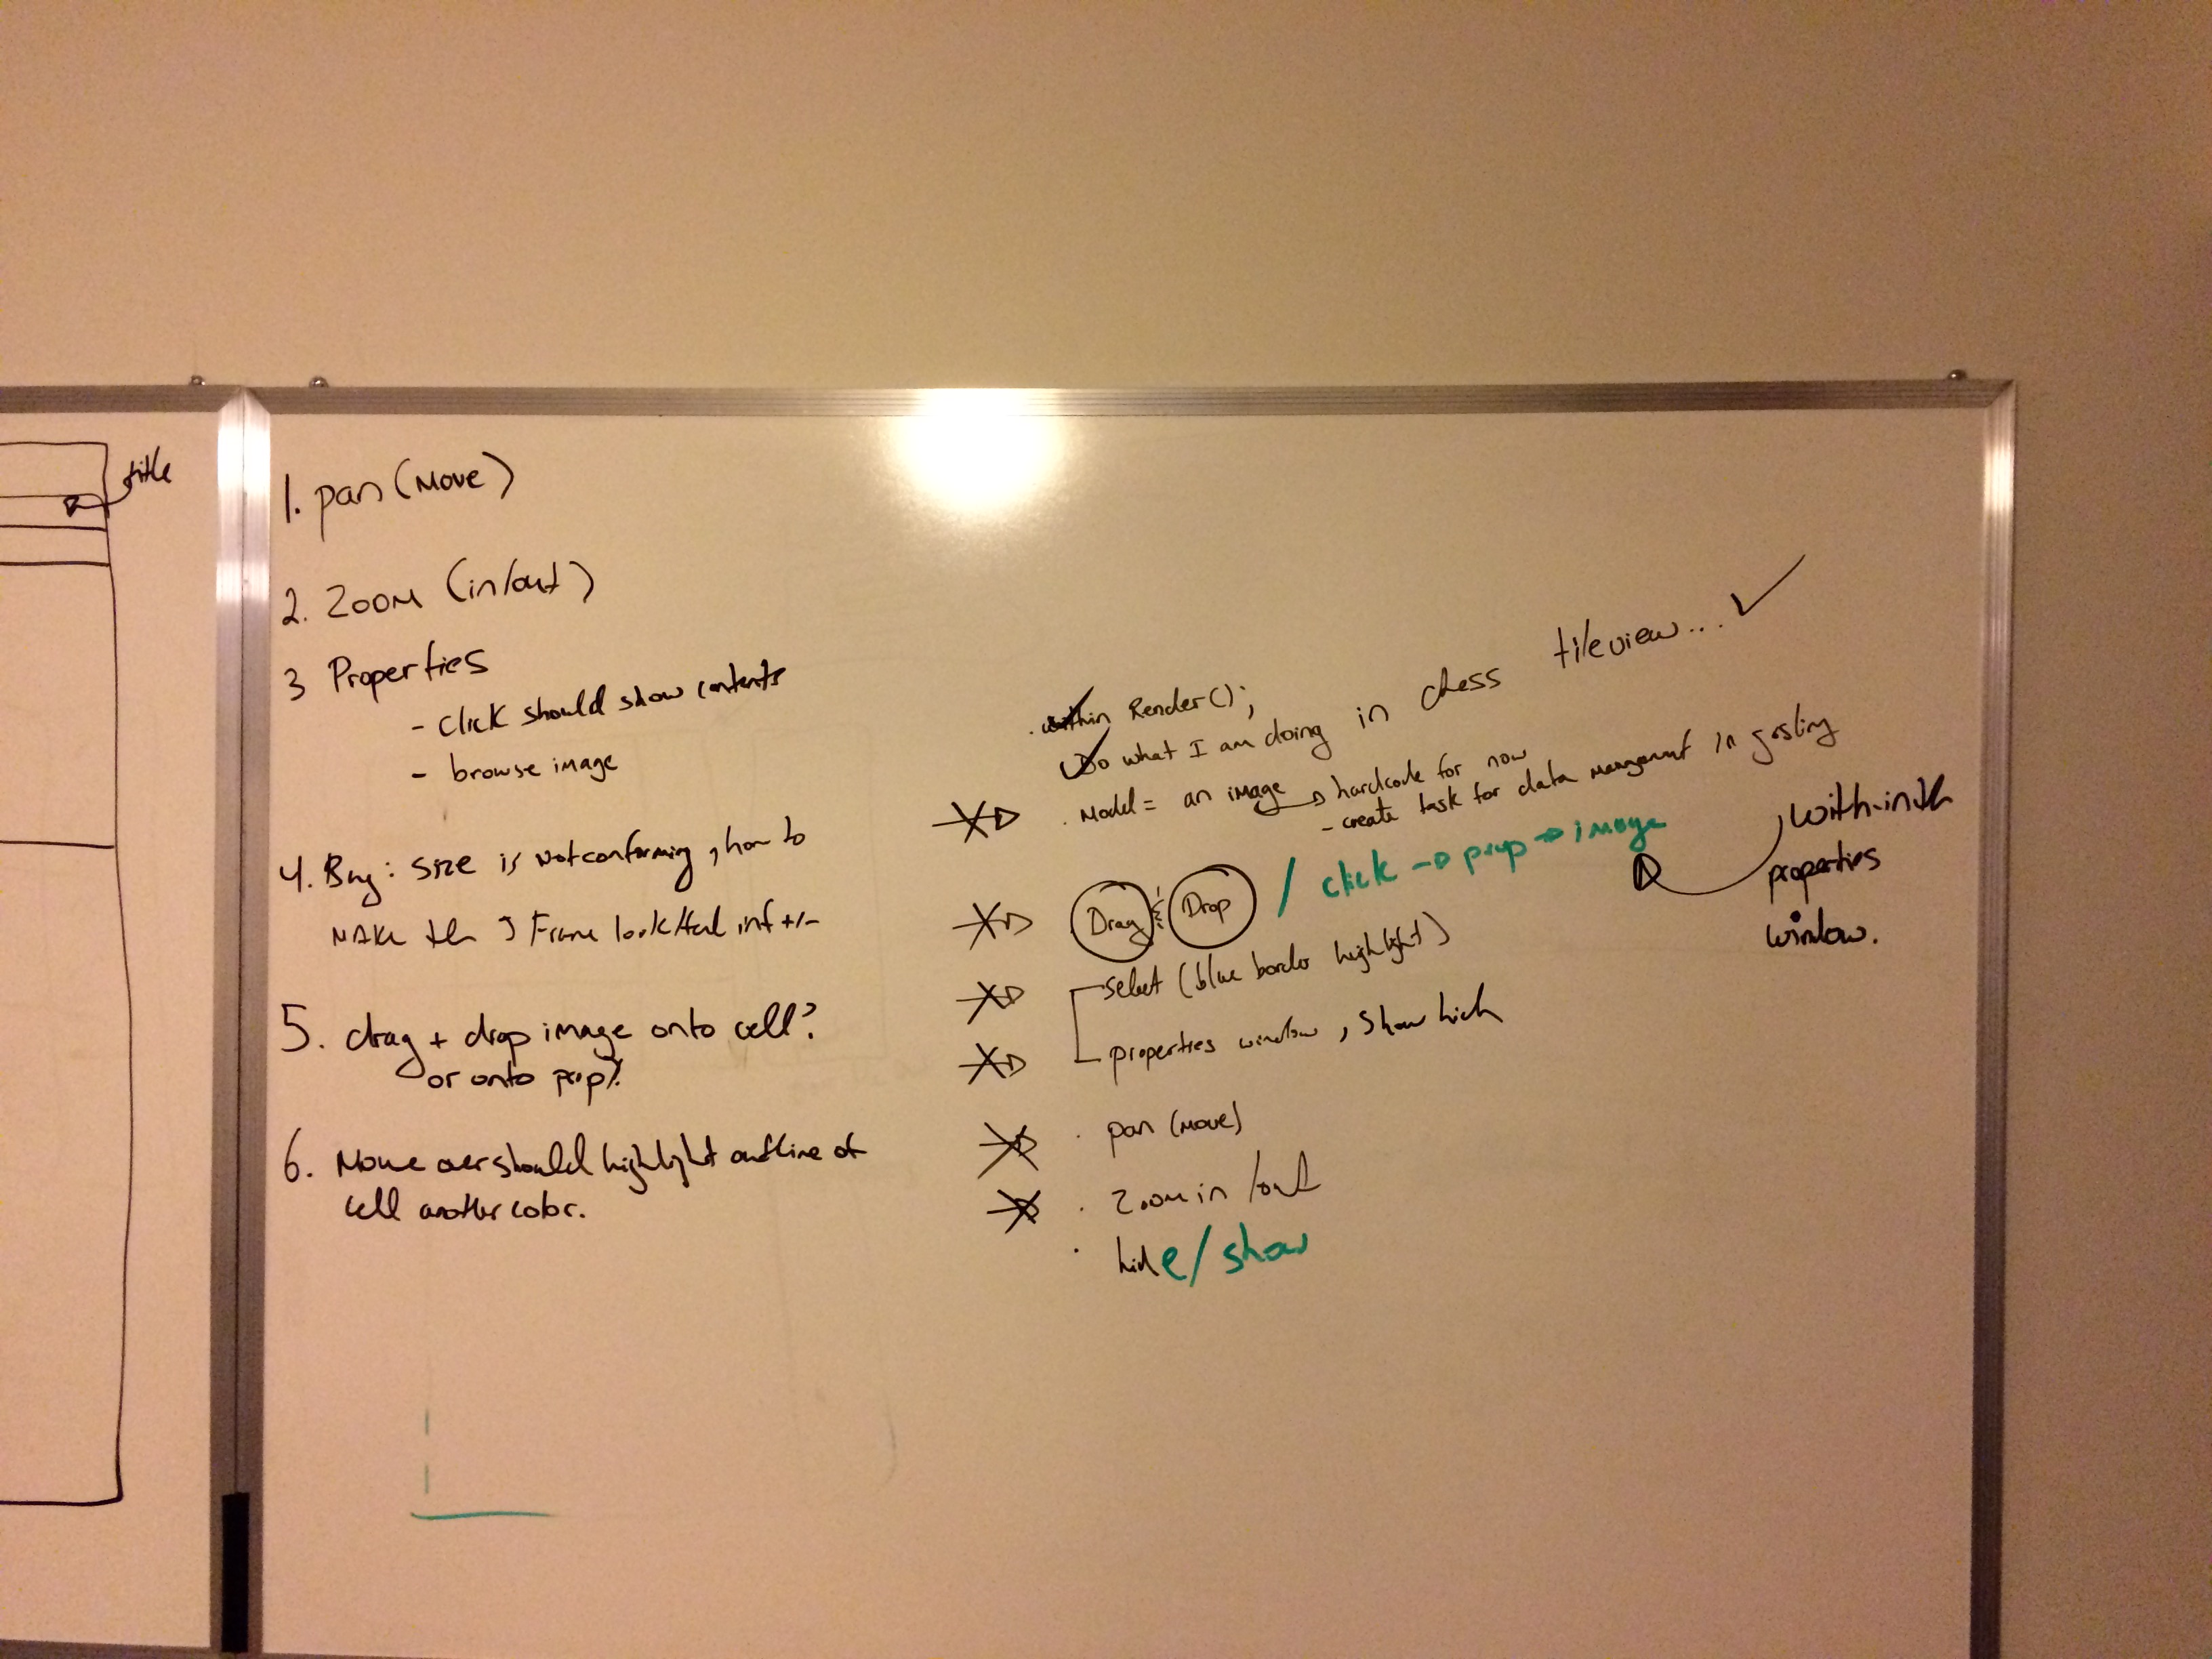 title
1. pan (Move)
2. Zoom (in/out)
3 Properties
- click should show contents
- browse image
4. Bug: size is not conforming, how to
make the JFrame look/feel inf +/-
5. drag + drop image onto cell?
or onto prop?
6. Mouse over should highlight outline of
cell another color.
. within Render();
Do what I am doing in chess tileview...
. Model = an image hardcode for now
- create task for data management in
Drag & Drop / click → prop → image
with-in the
properties
window.
select (blue border highlight)
properties window, show hide
. pan (move)
. Zoom in/out
. hide/show